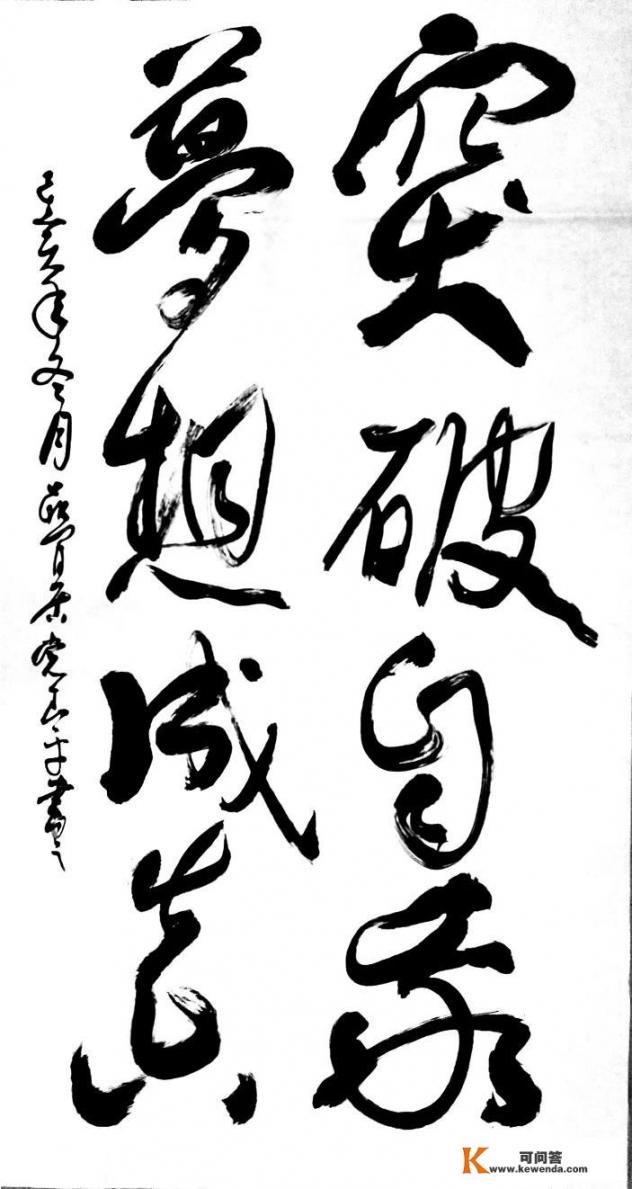 突破自我
夢想成真
己亥年冬月
K 可问答
www.kewenda.com